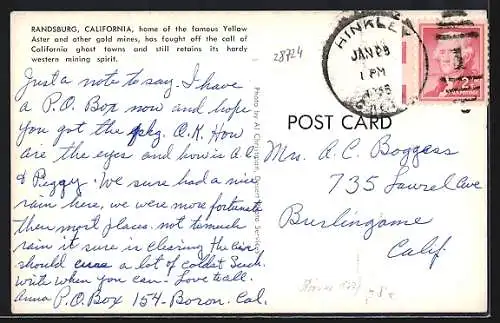 RANDSBURG, CALIFORNIA, home of the famous Yellow
Aster and other gold mines, has fought off the call of
California ghost towns and still retains its hardy
western mining spirit.
28724
HINKLEY
JAN 28
1 PM
CALIF
2¢
Just a note to say. I have
a P.O. Box now and hope
you got the pkg. O.K. How
are the eyes and how is A.C.
& Peggy. We sure had a nice
rain here, we were more fortunate
then most places. not to much
rain it sure is clearing the air
should cure a lot of colds & such.
write when you can - Love to all.
Anna P.O. Box 154 - Boron. Cal.
Photo by Al
POST CARD
Mrs. A. C. Boggess
735 Laurel Ave
Burlingame
Calif.